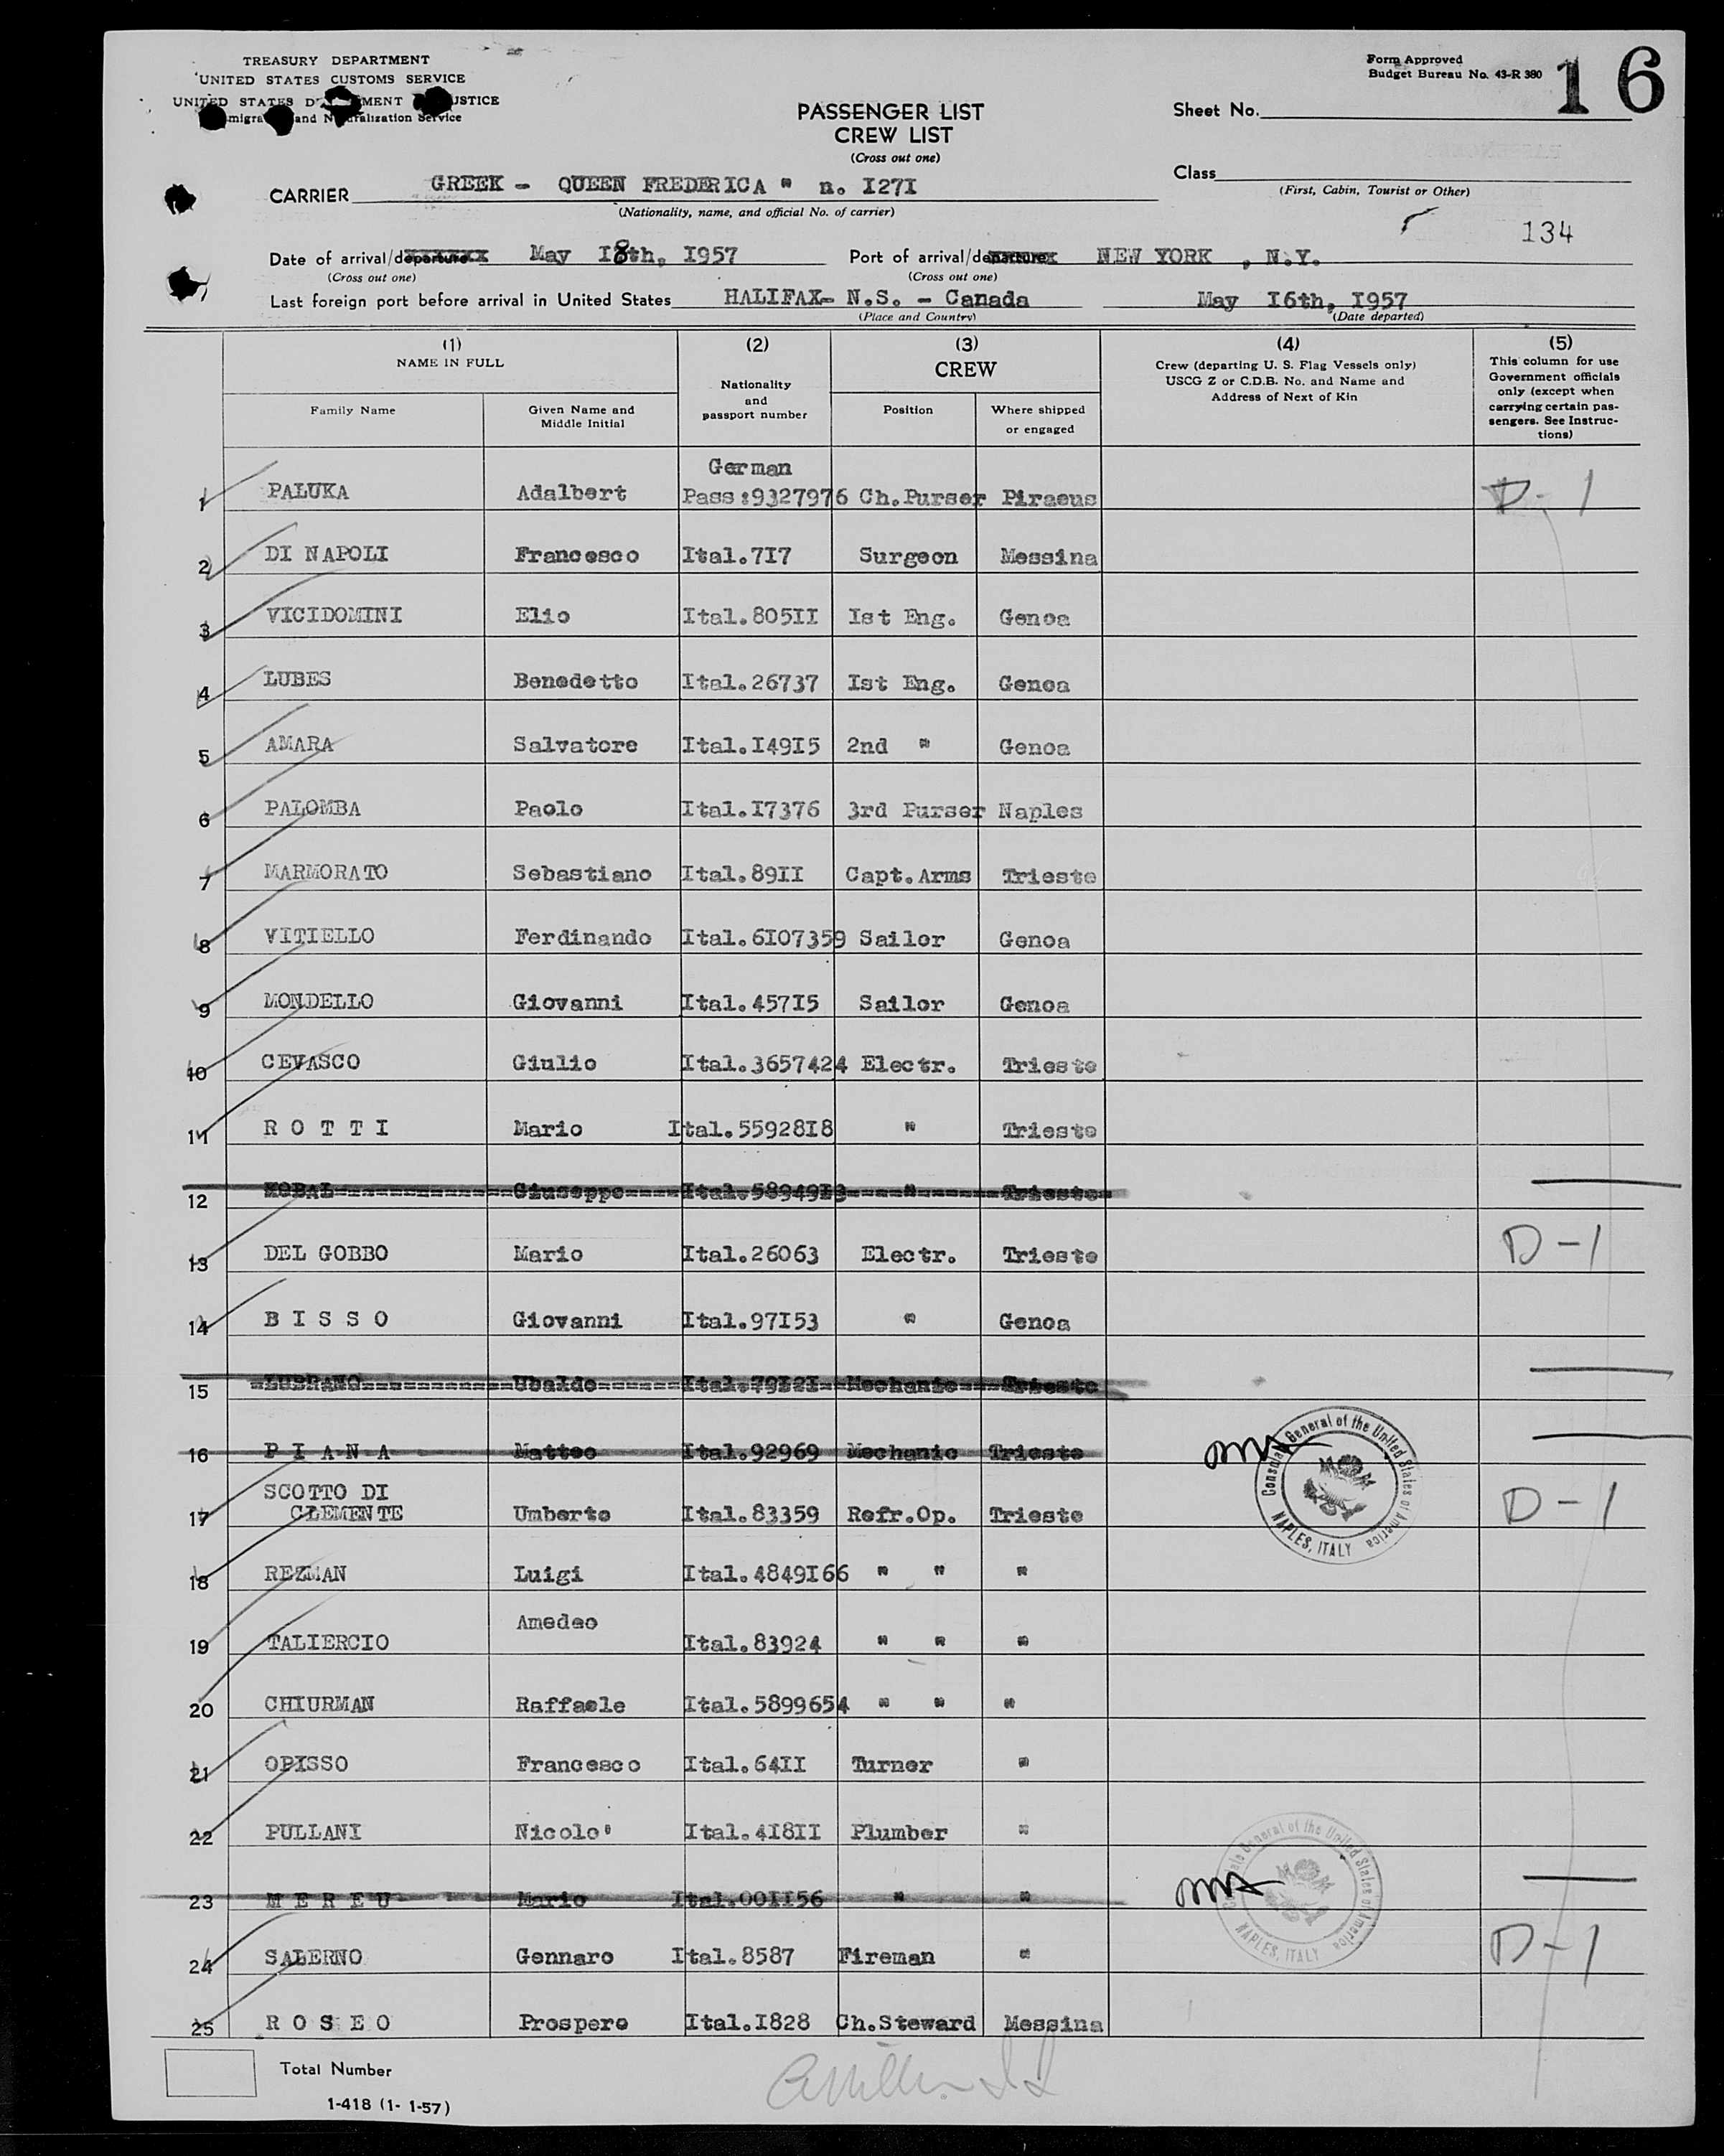 TREASURY DEPARTMENT
UNITED STATES CUSTOMS SERVICE
UNITED STATES D MENT USTICE
migra and N uralization Service
Form Approved
Budget Bureau No. 43-R 380
16
PASSENGER LIST
CREW LIST
(Cross out one)
Sheet No.
CARRIER GREEK - QUEEN FREDERICA " n. I27I
(Nationality, name, and official No. of carrier)
Class
(First, Cabin, Tourist or Other)
134
Date of arrival/departure May I8th, I957 Port of arrival/departure NEW YORK , N.Y.
(Cross out one) (Cross out one)
Last foreign port before arrival in United States HALIFAX- N.S. - Canada May I6th, I957
(Place and Country) (Date departed)
(1) (2) (3) (4) (5)
NAME IN FULL
Family Name
Given Name and
Middle Initial
Nationality
and
passport number
CREW
Position
Where shipped
or engaged
Crew (departing U. S. Flag Vessels only)
USCG Z or C.D.B. No. and Name and
Address of Next of Kin
This column for use
Government officials
only (except when
carrying certain pas-
sengers. See Instruc-
tions)
German
1 PALUKA Adalbert Pass:9327976 Ch.Purser Piraeus D-1
2 DI NAPOLI Francesco Ital.7I7 Surgeon Messina
3 VICIDOMINI Elio Ital.805II Ist Eng. Genoa
4 LUBES Benedetto Ital.26737 Ist Eng. Genoa
5 AMARA Salvatore Ital.I49I5 2nd " Genoa
6 PALOMBA Paolo Ital.I7376 3rd Purser Naples
7 MARMORATO Sebastiano Ital.89II Capt.Arms Trieste
8 VITIELLO Ferdinando Ital.6I07359 Sailor Genoa
9 MONDELLO Giovanni Ital.457I5 Sailor Genoa
10 CEVASCO Giulio Ital.3657424 Electr. Trieste
11 R O T T I Mario Ital.55928I8 " Trieste
12 KOBAL Giuseppe Ital.58949I3 " Trieste
13 DEL GOBBO Mario Ital.26063 Electr. Trieste D-1
14 B I S S O Giovanni Ital.97I53 " Genoa
15 LUBRANO Ubaldo Ital.79I2I Mechanic Trieste
16 P I A N A Matteo Ital.92969 Mechanic Trieste
SCOTTO DI
17 CLEMENTE Umberto Ital.83359 Refr.Op. Trieste D-1
Consulate General of the United States of America
NAPLES, ITALY
18 REZMAN Luigi Ital.4849I66 " " "
19 TALIERCIO Amedeo Ital.83924 " " "
20 CHIURMAN Raffaele Ital.5899654 " " "
21 OPISSO Francesco Ital.64II Turner "
22 PULLANI Nicolo' Ital.4I8II Plumber "
23 M E R E U Mario Ital.00II56 " "
Consulate General of the United States of America
NAPLES, ITALY
24 SALERNO Gennaro Ital.8587 Fireman " D-1
25 R O S E O Prospero Ital.I828 Ch.Steward Messina
Total Number
1-418 (1- 1-57)